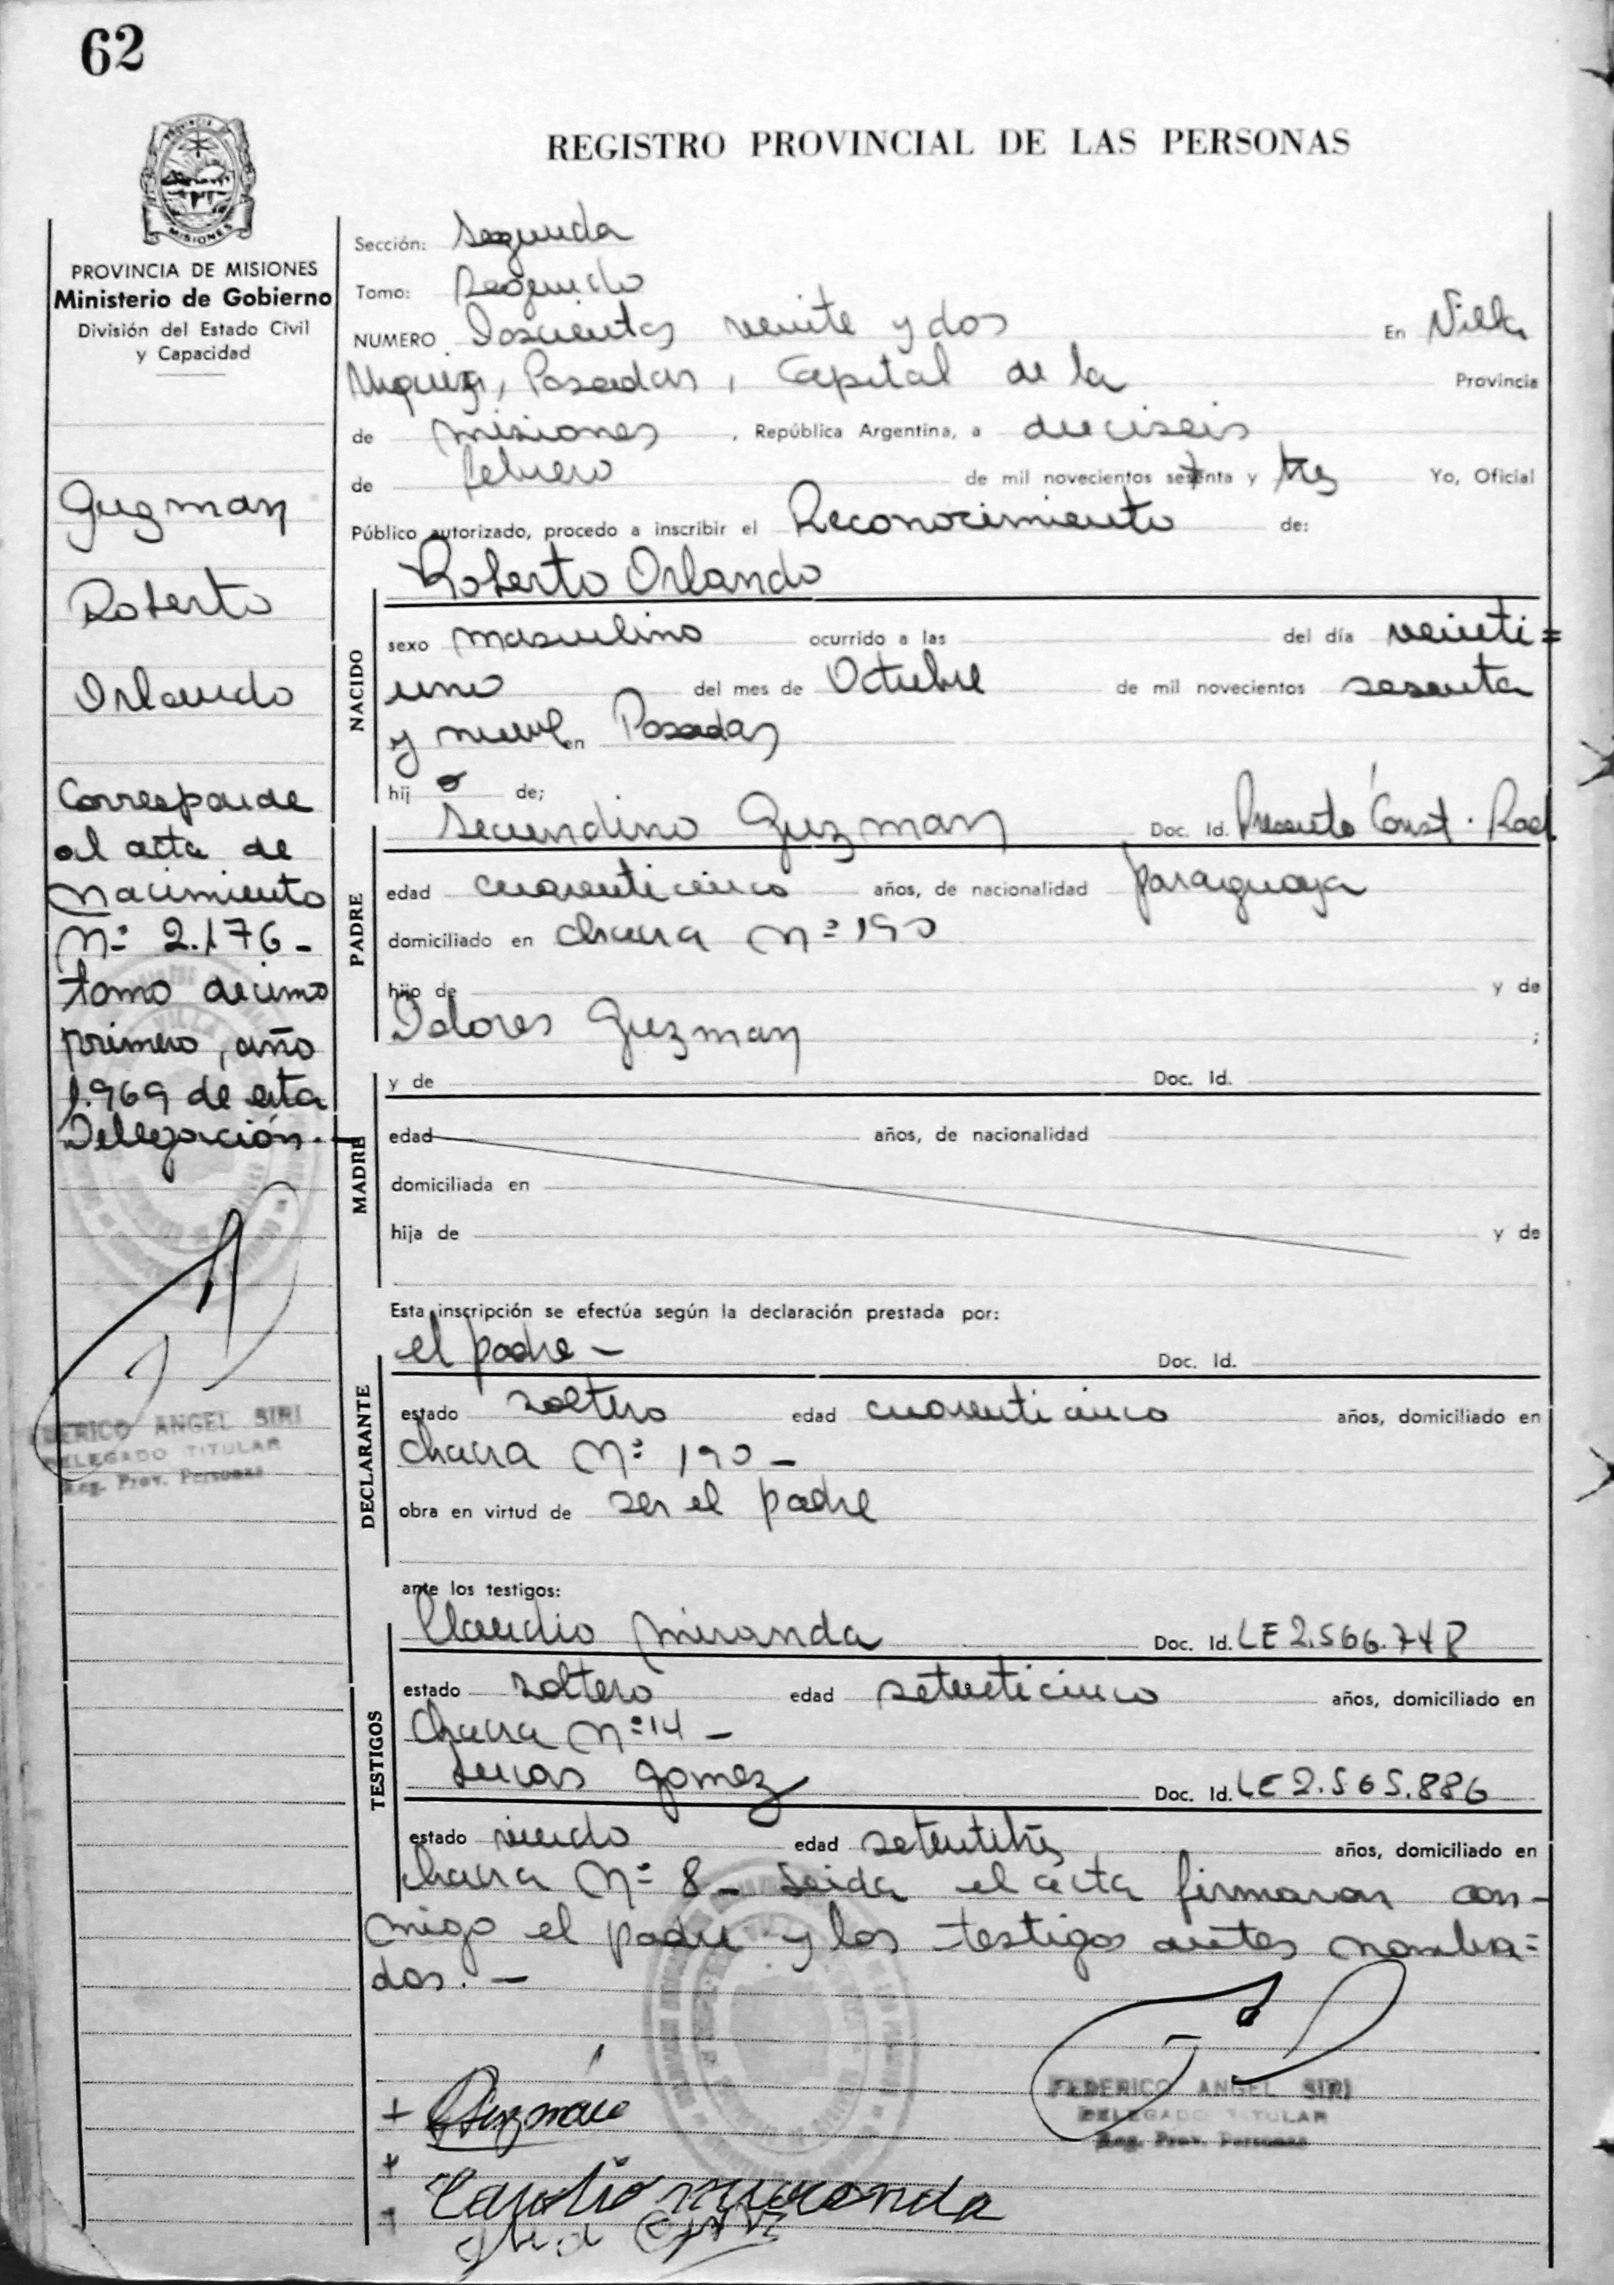 62
REGISTRO PROVINCIAL DE LAS PERSONAS
MISIONES
PROVINCIA DE MISIONES
Ministerio de Gobierno
División del Estado Civil
y Capacidad
Guzman
Roberto
Orlando
Corresponde
al acta de
Nacimiento
Nº 2.176 -
tomo décimo
primero, año
1.969 de esta
Delegación. -
FEDERICO ANGEL SIRI
DELEGADO TITULAR
Reg. Prov. Personas
Sección: Segunda
Tomo: Segundo
NUMERO Doscientos veinte y dos En Villa
Urquiza, Posadas, Capital de la Provincia
de Misiones, República Argentina, a dieciseis
de febrero de mil novecientos setenta y tres Yo, Oficial
Público autorizado, procedo a inscribir el Reconocimiento de:
Roberto Orlando
NACIDO
sexo masculino ocurrido a las del día veinti=
uno del mes de Octubre de mil novecientos sesenta
y nueve en Posadas
hijo de;
PADRE
Secundino Guzman Doc. Id. Presentó Const. Rad
edad cuarenticinco años, de nacionalidad paraguaya
domiciliado en chacra Nº 190
hijo de y de
Dolores Guzman ;
MADRE
y de Doc. Id.
edad años, de nacionalidad
domiciliada en
hija de y de
Esta inscripción se efectúa según la declaración prestada por:
DECLARANTE
el padre - Doc. Id.
estado soltero edad cuarenticinco años, domiciliado en
chacra Nº 190 -
obra en virtud de ser el padre
ante los testigos:
TESTIGOS
Claudio Miranda Doc. Id. LE 2.566.748
estado soltero edad setenticinco años, domiciliado en
Chacra Nº 14 -
Lucas Gomez Doc. Id. LE 2.565.886
estado viudo edad setentitrés años, domiciliado en
chacra Nº 8 - Leida el acta firmaron con-
migo el padre y los testigos antes nombra=
dos. -
FEDERICO ANGEL SIRI
DELEGADO TITULAR
Reg. Prov. Personas
+ Guzmán
+ Claudio Miranda